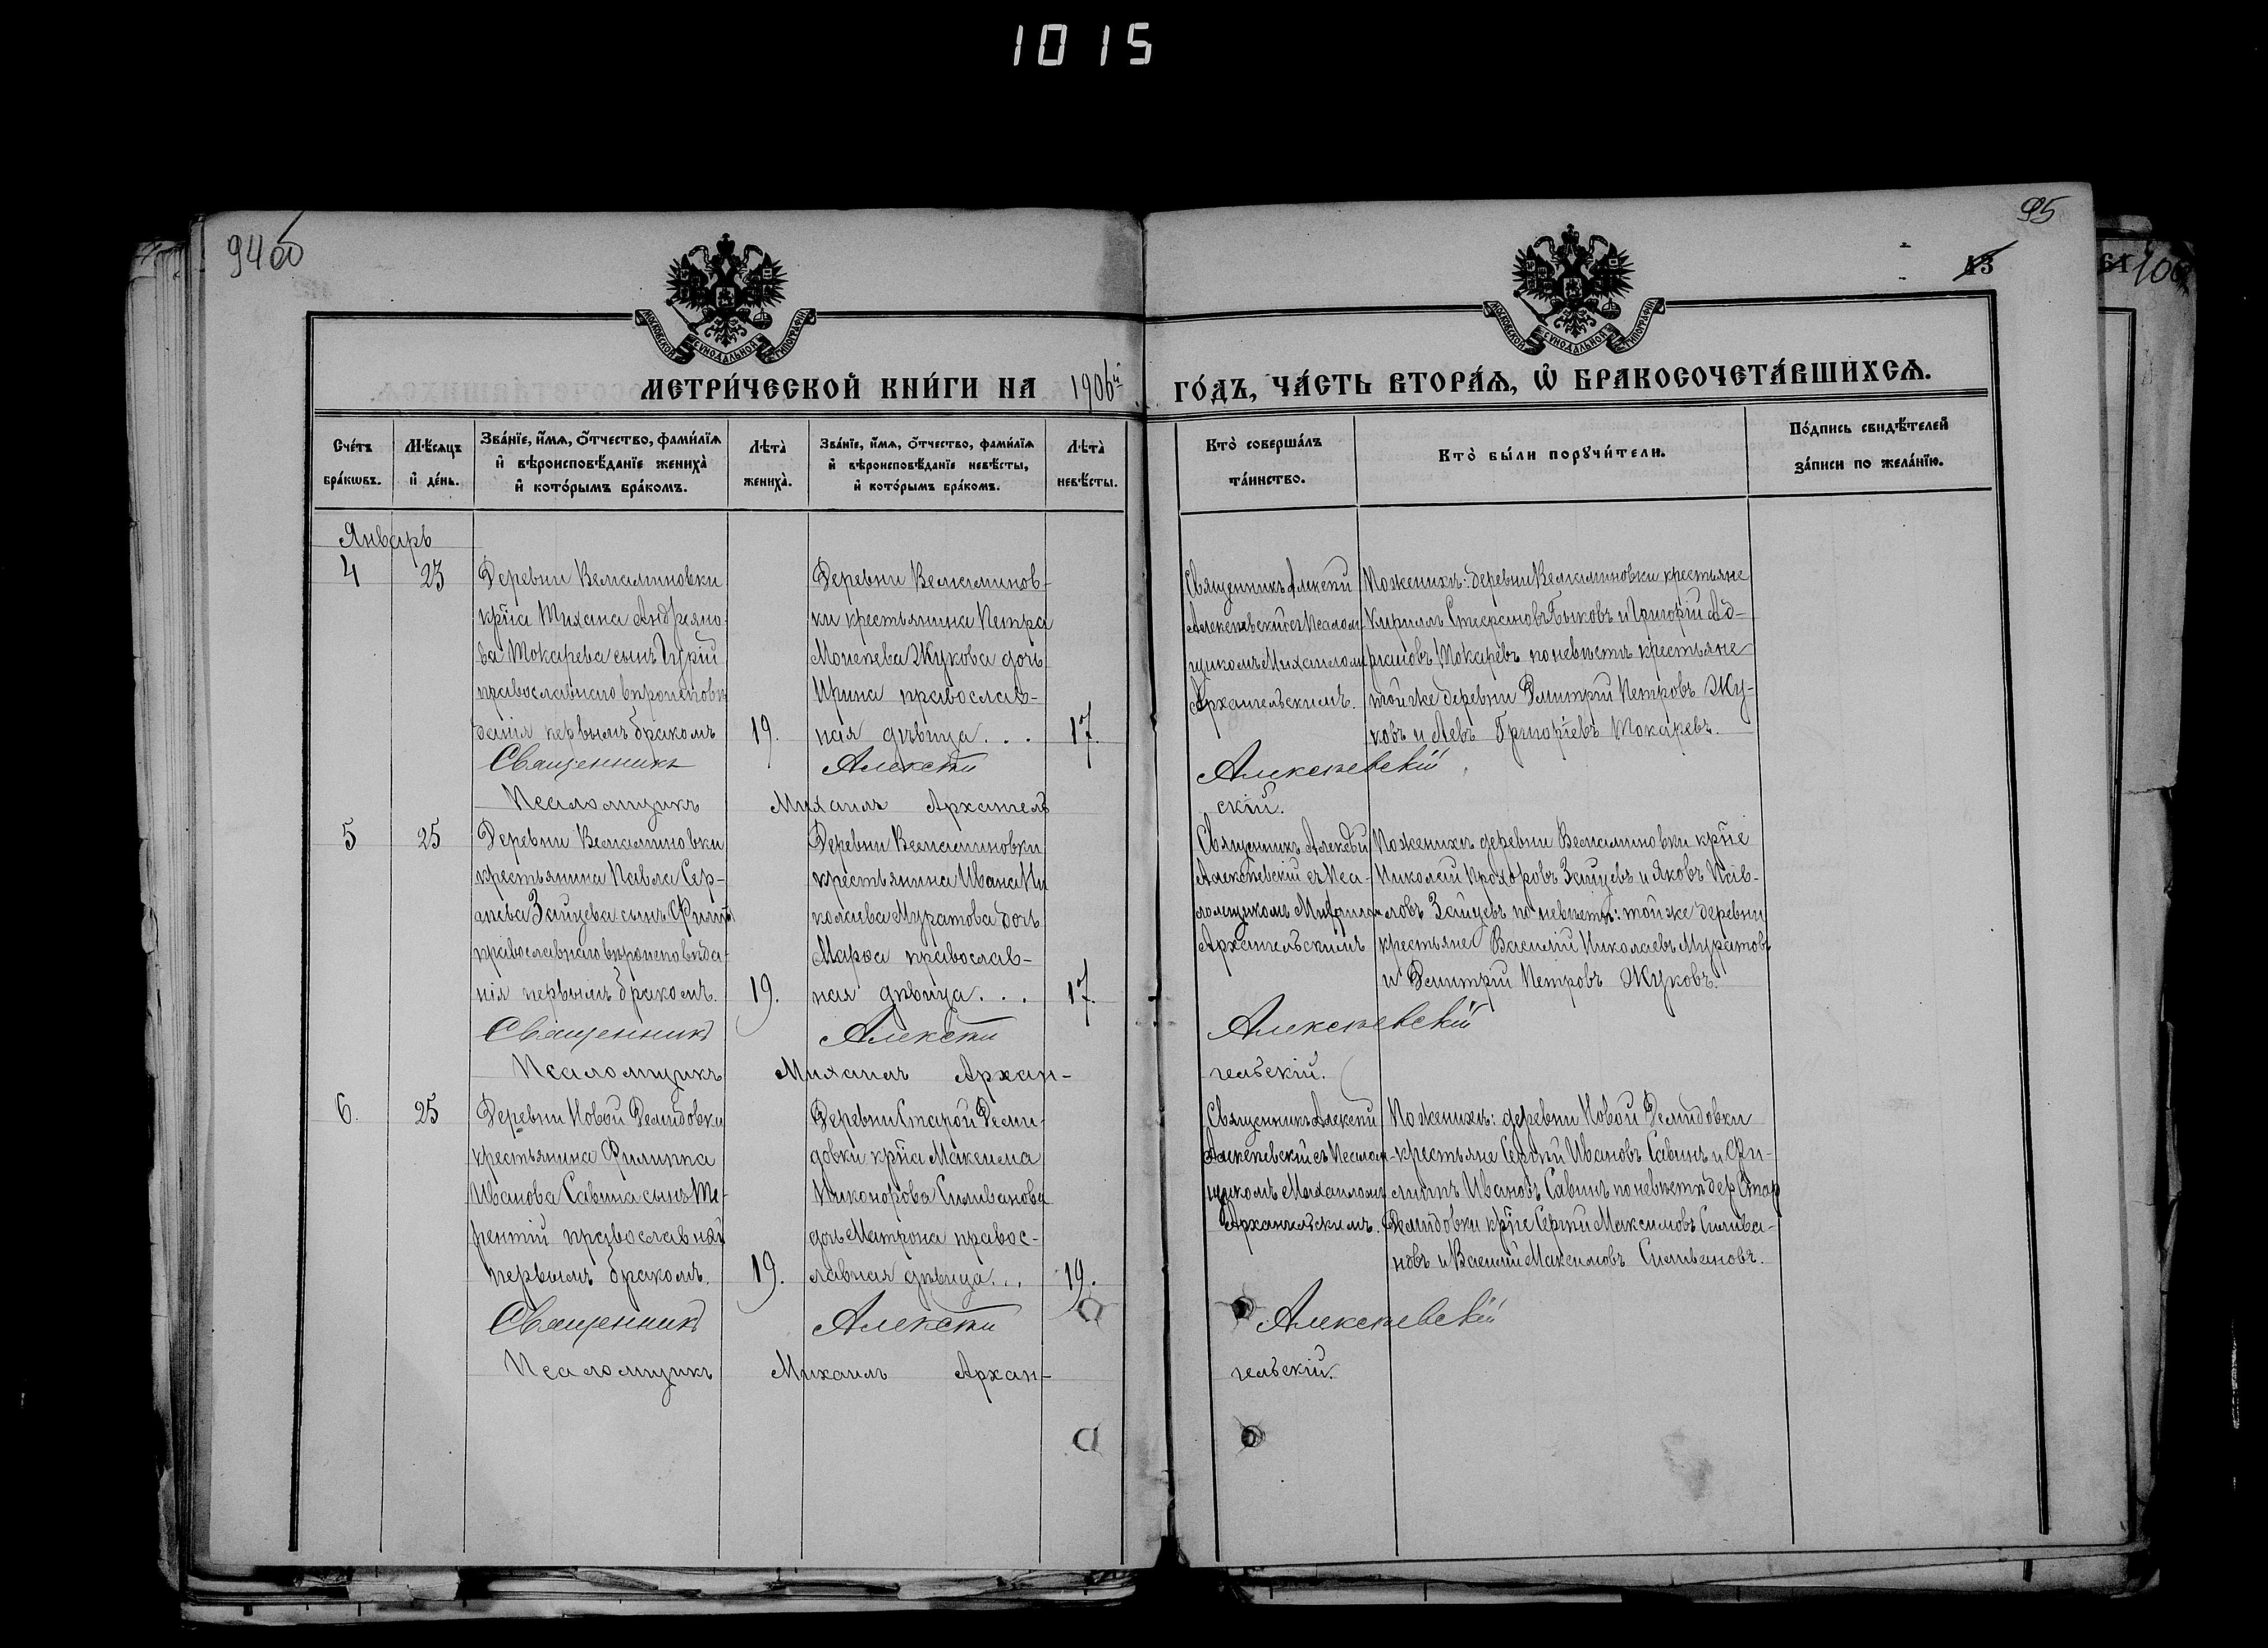 1015
94об
95
13
61
МОСКОВСКОЙ СУНОДАЛЬНОЙ ТИПОГРАФІИ
МОСКОВСКОЙ СУНОДАЛЬНОЙ ТИПОГРАФІИ
МЕТРИ́ЧЕСКОЙ КНИ́ГИ НА 1906й ГО́ДЪ, ЧА́СТЬ ВТОРА́Ѧ, Ѡ҆ БРАКОСОЧЕТА́ВШИХСѦ.
Сче́тъ
бра́кѡвъ.
Мѣ́сѧцъ
и҆ де́нь.
Зва́нїе, и҆́мѧ, ѻ҆́тчество, фами́лїѧ
и҆ вѣроисповѣ́данїе жениха̀
и҆ кото́рымъ бра́комъ.
Лѣта̀
жениха̀.
Зва́нїе, и҆́мѧ, ѻ҆́тчество, фами́лїѧ
и҆ вѣроисповѣ́данїе невѣ́сты,
и҆ кото́рымъ бра́комъ.
Лѣта̀
невѣ́сты.
Кто̀ соверша́лъ
та́инство.
Кто̀ бы́ли порꙋчи́тели.
По́дпись свидѣ́телей
за́писи по жела́нїю.
Январь
4
23
Деревни Вельяминовки
кр҃на Тихана Андреяно-
ва Токарева сынъ Гурій
православнаго вѣроисповѣ
данія первымъ бракомъ
19.
Деревни Вельяминов-
ки крестьянина Петра
Моисѣева Жукова дочь
Ирина православ-
ная дѣвица...
17.
Священникъ Алексѣй
Алексѣевскій съ Псалом-
щикомъ Михаиломъ
Архангельскимъ.
По женихѣ: деревни Вельяминовки крестьяне
Кирилъ Стефановъ Быковъ и Григорій Ад-
ріановъ Токаревъ по невѣстѣ крестьяне
той же деревни Дмитрій Петровъ Жу-
ковъ и Левъ Григоріевъ Токаревъ.
Священникъ Алексѣй Алексѣевскій
Псаломщикъ Михаилъ Архангель
скій.
5
25
Деревни Вельяминовки
крестьянина Павла Сер-
гѣева Зайцева сынъ Филипъ
православнаго вѣроисповѣда-
нія первымъ бракомъ.
19.
Деревни Вельяминовки
крестьянина Ивана Ни
колаева Муратова дочь
Марѳа православ-
ная дѣвица...
17.
Священникъ Алексѣй
Алексѣевскій съ Пса-
ломщикомъ Михаиломъ
Архангельскимъ
По женихѣ деревни Вельяминовки кр҃не
Николай Прохоровъ Зайцевъ и Яковъ Пав-
ловъ Зайцевъ по невѣстѣ: той же деревни
крестьяне Василій Николаевъ Муратовъ
и Дмитрій Петровъ Жуковъ.
Священникъ Алексѣй Алексѣевскій
Псаломщикъ Михаилъ Архан-
гельскій.
6.
25
Деревни Новой Демидовки
крестьянина Филиппа
Иванова Савина сынъ Те-
рентій православный
первымъ бракомъ.
19.
Деревни Старой Деми-
довки кр҃на Максима
Никонорова Силиванова
дочь Матрона правос-
лавная дѣвица...
19.
Священникъ Алексѣй
Алексѣевскій съ Псалом-
щикомъ Михаиломъ
Архангельскимъ.
По женихѣ: деревни Новой Демидовки
крестьяне Сергѣй Ивановъ Савинъ и Фи-
липъ Ивановъ Савинъ по невѣстѣ дер Стар
Демидовки кр҃не Сергѣй Максимовъ Силива-
новъ и Василій Максимовъ Силивановъ.
Священникъ Алексѣй Алексѣевскій
Псаломщикъ Михаилъ Архан-
гельскій.